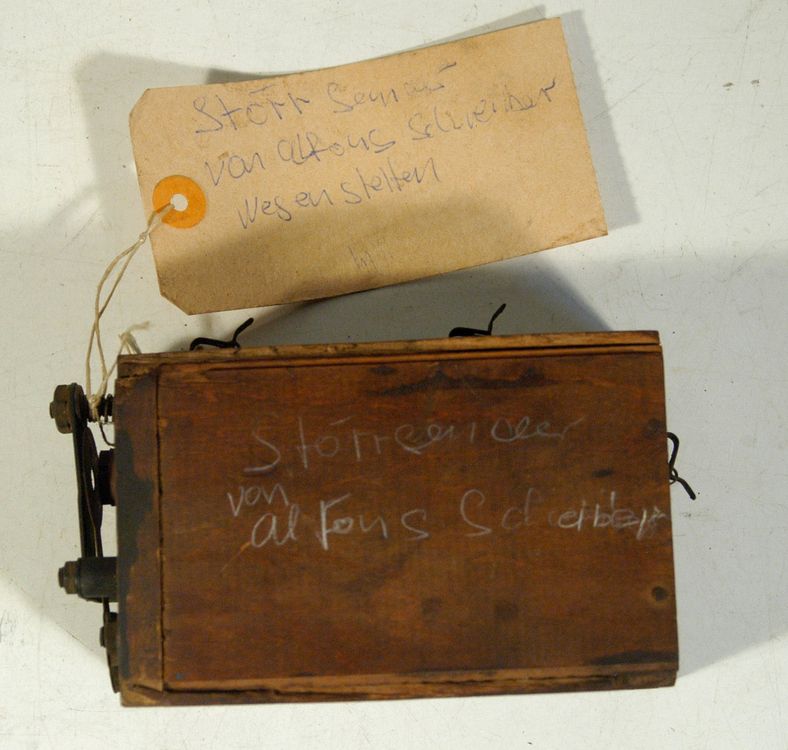 Störr Sender
von alfons Schreiber
Wesenstetten
Störrsender
von
alfons Schreiber